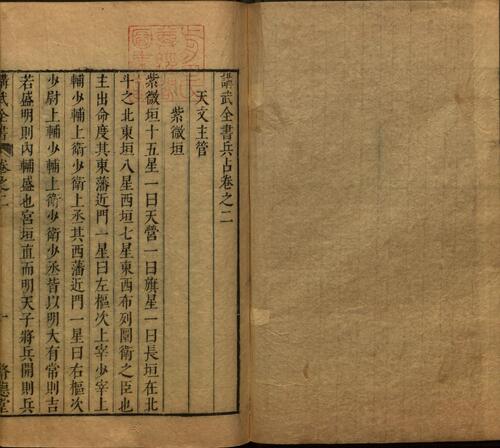 講武全書兵占卷之二
天文主管
紫微垣
紫微垣十五星一曰天營一曰旗星一曰長垣在北
斗之北東垣八星西垣七星東西布列圍衛之臣也
主出命度其東藩近門一星曰左樞次上宰少宰上
輔少輔上衛少衛上丞其西藩近門一星曰右樞次
少尉上輔少輔上衛少衛少丞皆以明大有常則吉
若盛明則內輔盛也宮垣直而明天子將兵開則兵
講武全書 卷之二 一